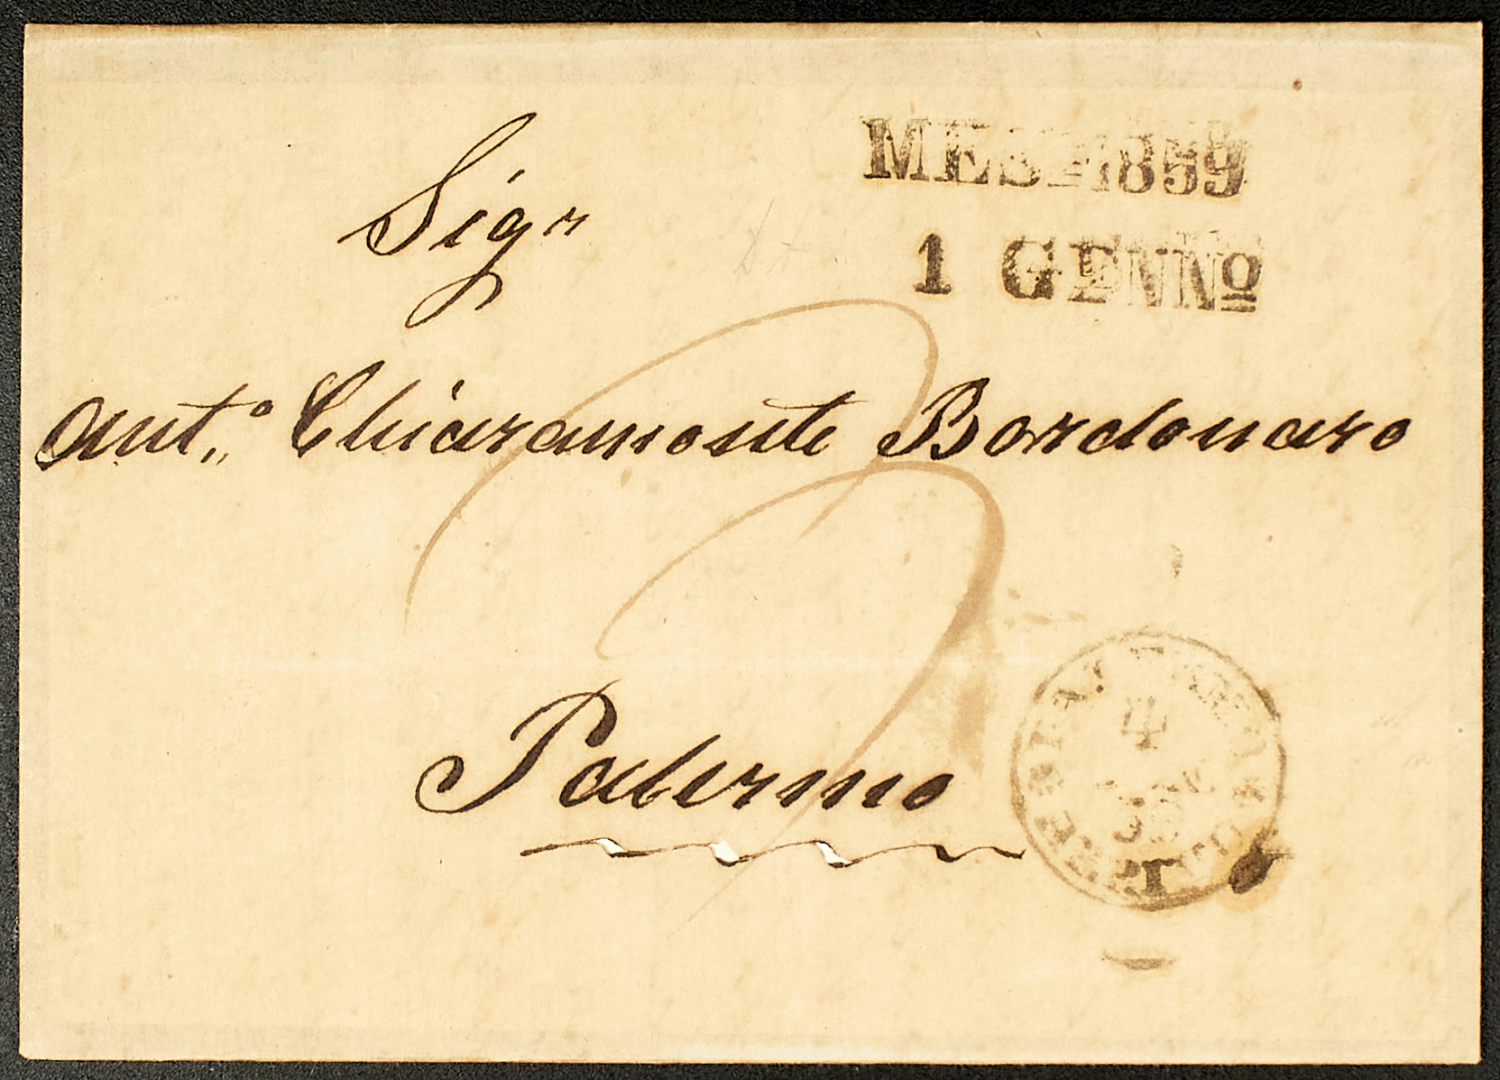 MESS. 1859
1 GENNº
Sigr
Ant.º Chiaramonte Bordonaro
Palermo
4